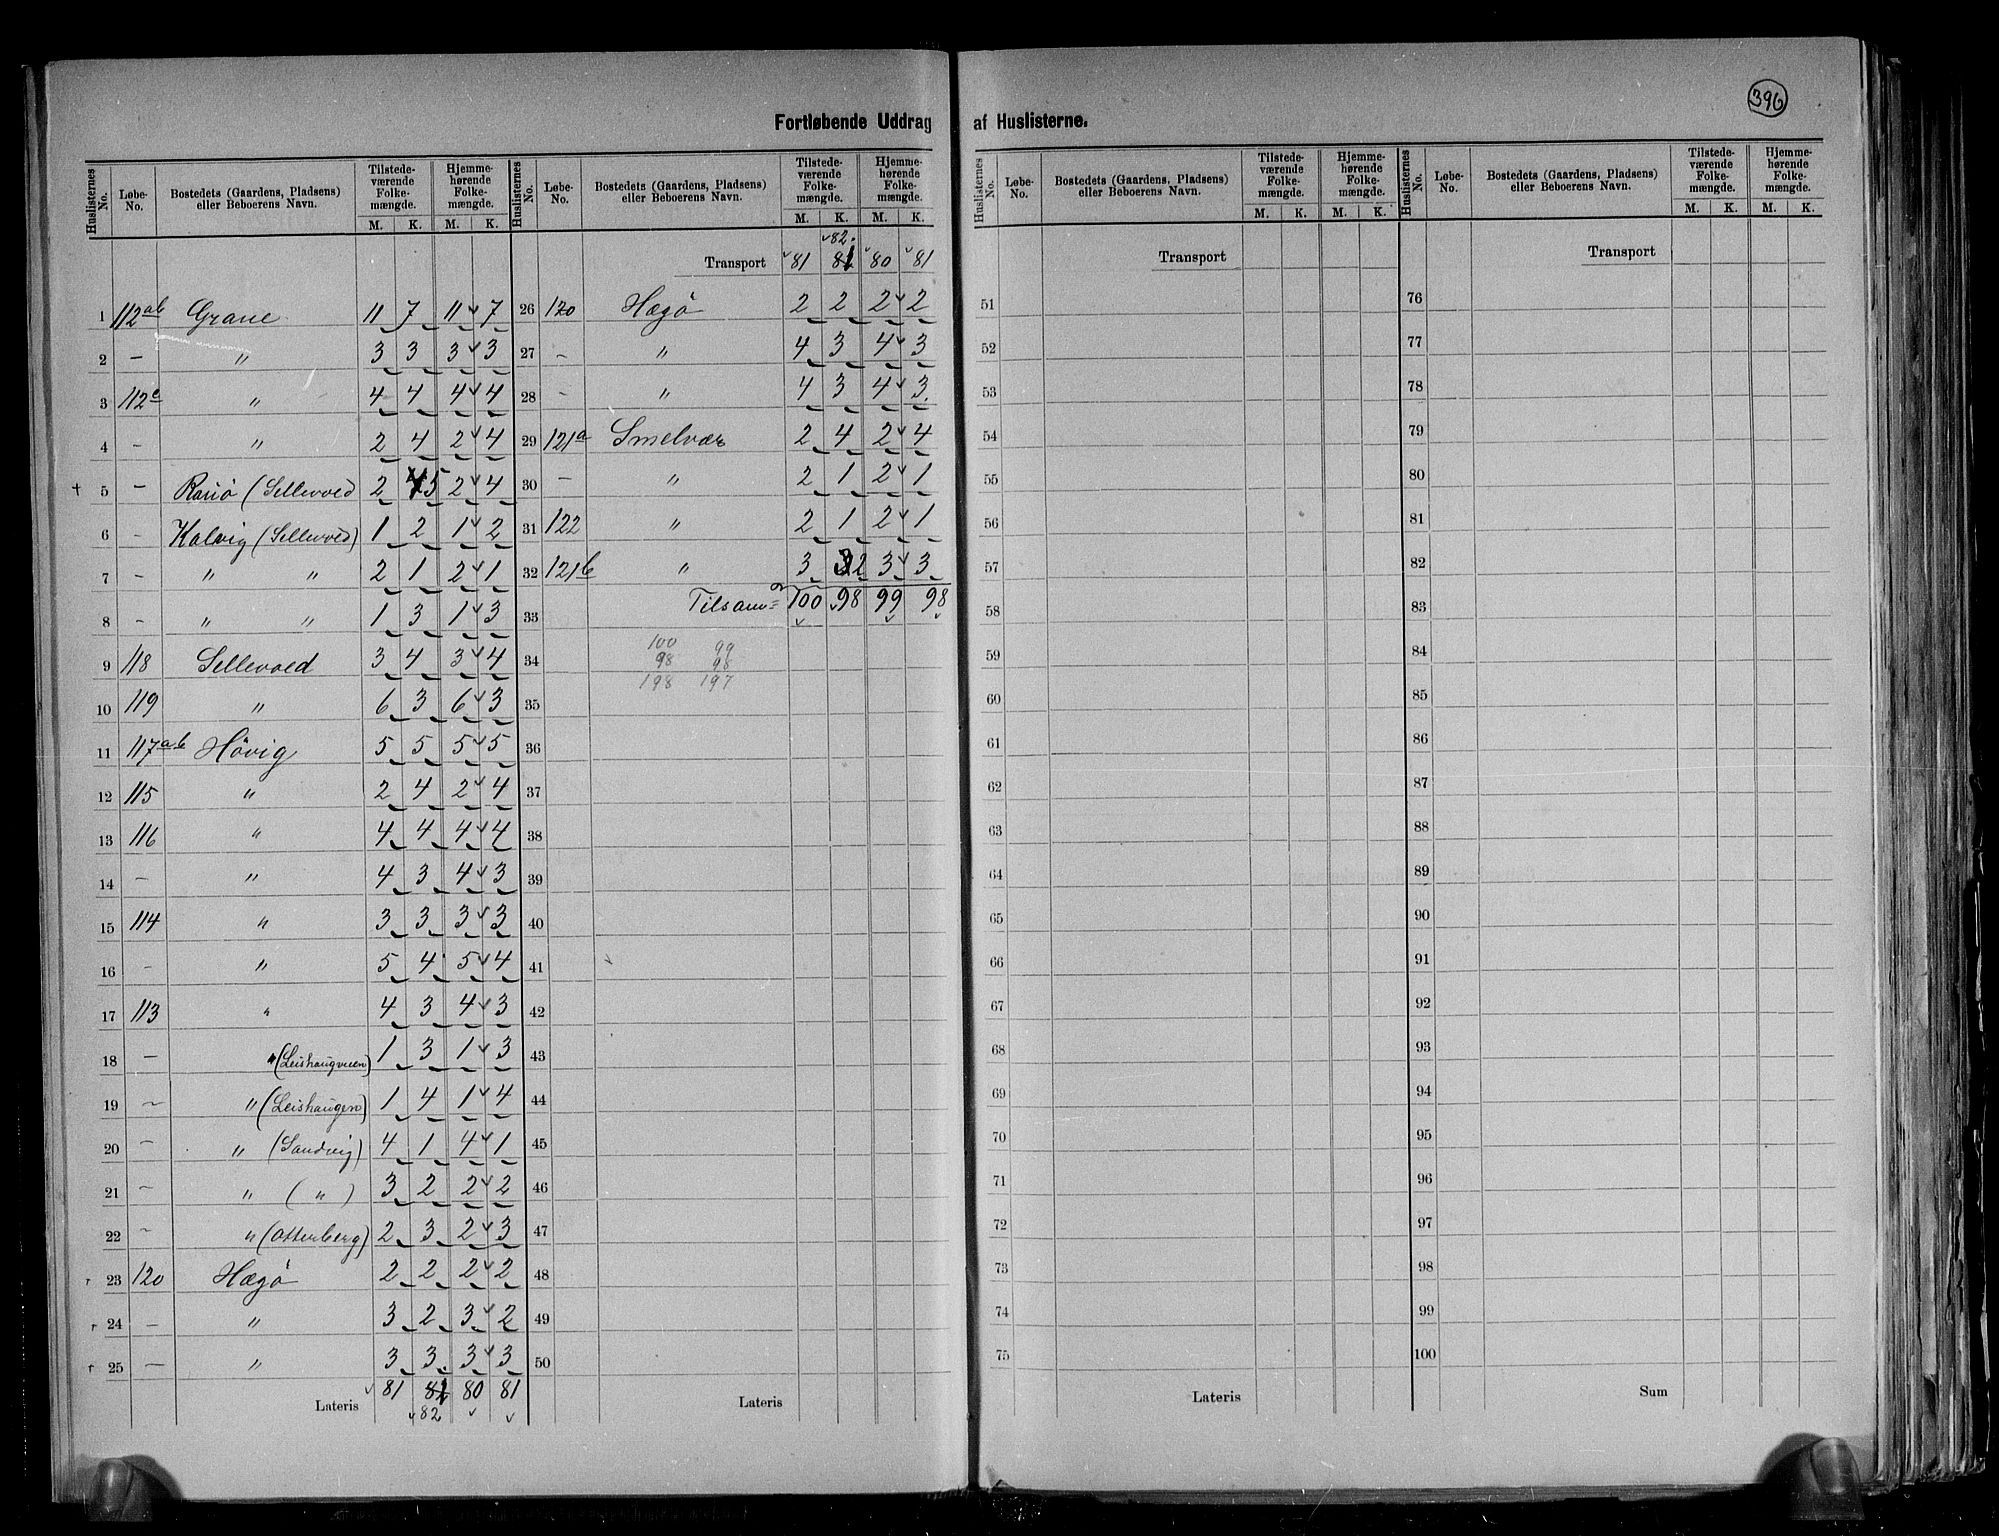 396
Fortløbende Uddrag af Huslisterne.
Huslisternes No. Løbe-No. Bostedets (Gaardens, Pladsen) eller Beboerens Navn. Tilstedeværende Folkemængde. M. K. Hjemmehørende Folkemængde. M. K.
1 112ab Grane 11 7 11 7
2 – " 3 3 3 3
3 112c " 4 4 4 4
4 – " 2 4 2 4
5 – (Sellevoed 2 5 2 4
6 – Kalvig (Sellevoed) 1 2 1 2
7 – " " 2 1 2 1
8 – " " 1 3 1 3
9 118 Sellevoed 3 4 3 4
10 119 " 6 3 6 3
11 117ab Hövig 5 5 5 5
12 115 " 2 4 2 4
13 116 " 4 4 4 4
14 – " 4 3 4 3
15 114 " 3 3 3 3
16 – " 5 4 5 4
17 113 " 4 3 4 3
18 – " (Leishaugveen) 1 3 1 3
19 – " (Leishaugen) 1 4 1 4
20 – " (Sandvig) 4 1 4 1
21 – " ( " ) 3 2 2 2
22 – " (Otterberg) 2 3 2 3
23 120 Hægö 2 2 2 2
24 – " 3 2 3 2
25 – " 3 3 3 3
Lateris 81 81 80 81
82
Huslisternes No. Løbe-No. Bostedets (Gaardens, Pladsen) eller Beboerens Navn. Tilstedeværende Folkemængde. M. K. Hjemmehørende Folkemængde. M. K.
82.
Transport 81 81 80 81
26 120 Hægö 2 2 2 2
27 – " 4 3 4 3
28 – " 4 3 4 3
29 121a Smelvær 2 4 2 4
30 – " 2 1 2 1
31 122 " 2 1 2 1
32 121b " 3 2 3 3
33 Tilsam= 100 98 99 98
34 100 99
98 98
198 197
35
36
37
38
39
40
41
42
43
44
45
46
47
48
49
50
Lateris
Huslisternes No. Løbe-No. Bostedets (Gaardens, Pladsen) eller Beboerens Navn. Tilstedeværende Folkemængde. M. K. Hjemmehørende Folkemængde. M. K.
Transport
51
52
53
54
55
56
57
58
59
60
61
62
63
64
65
66
67
68
69
70
71
72
73
74
75
Lateris
Huslisternes No. Løbe-No. Bostedets (Gaardens, Pladsen) eller Beboerens Navn. Tilstedeværende Folkemængde. M. K. Hjemmehørende Folkemængde. M. K.
Transport
76
77
78
79
80
81
82
83
84
85
86
87
88
89
90
91
92
93
94
95
96
97
98
99
100
Sum